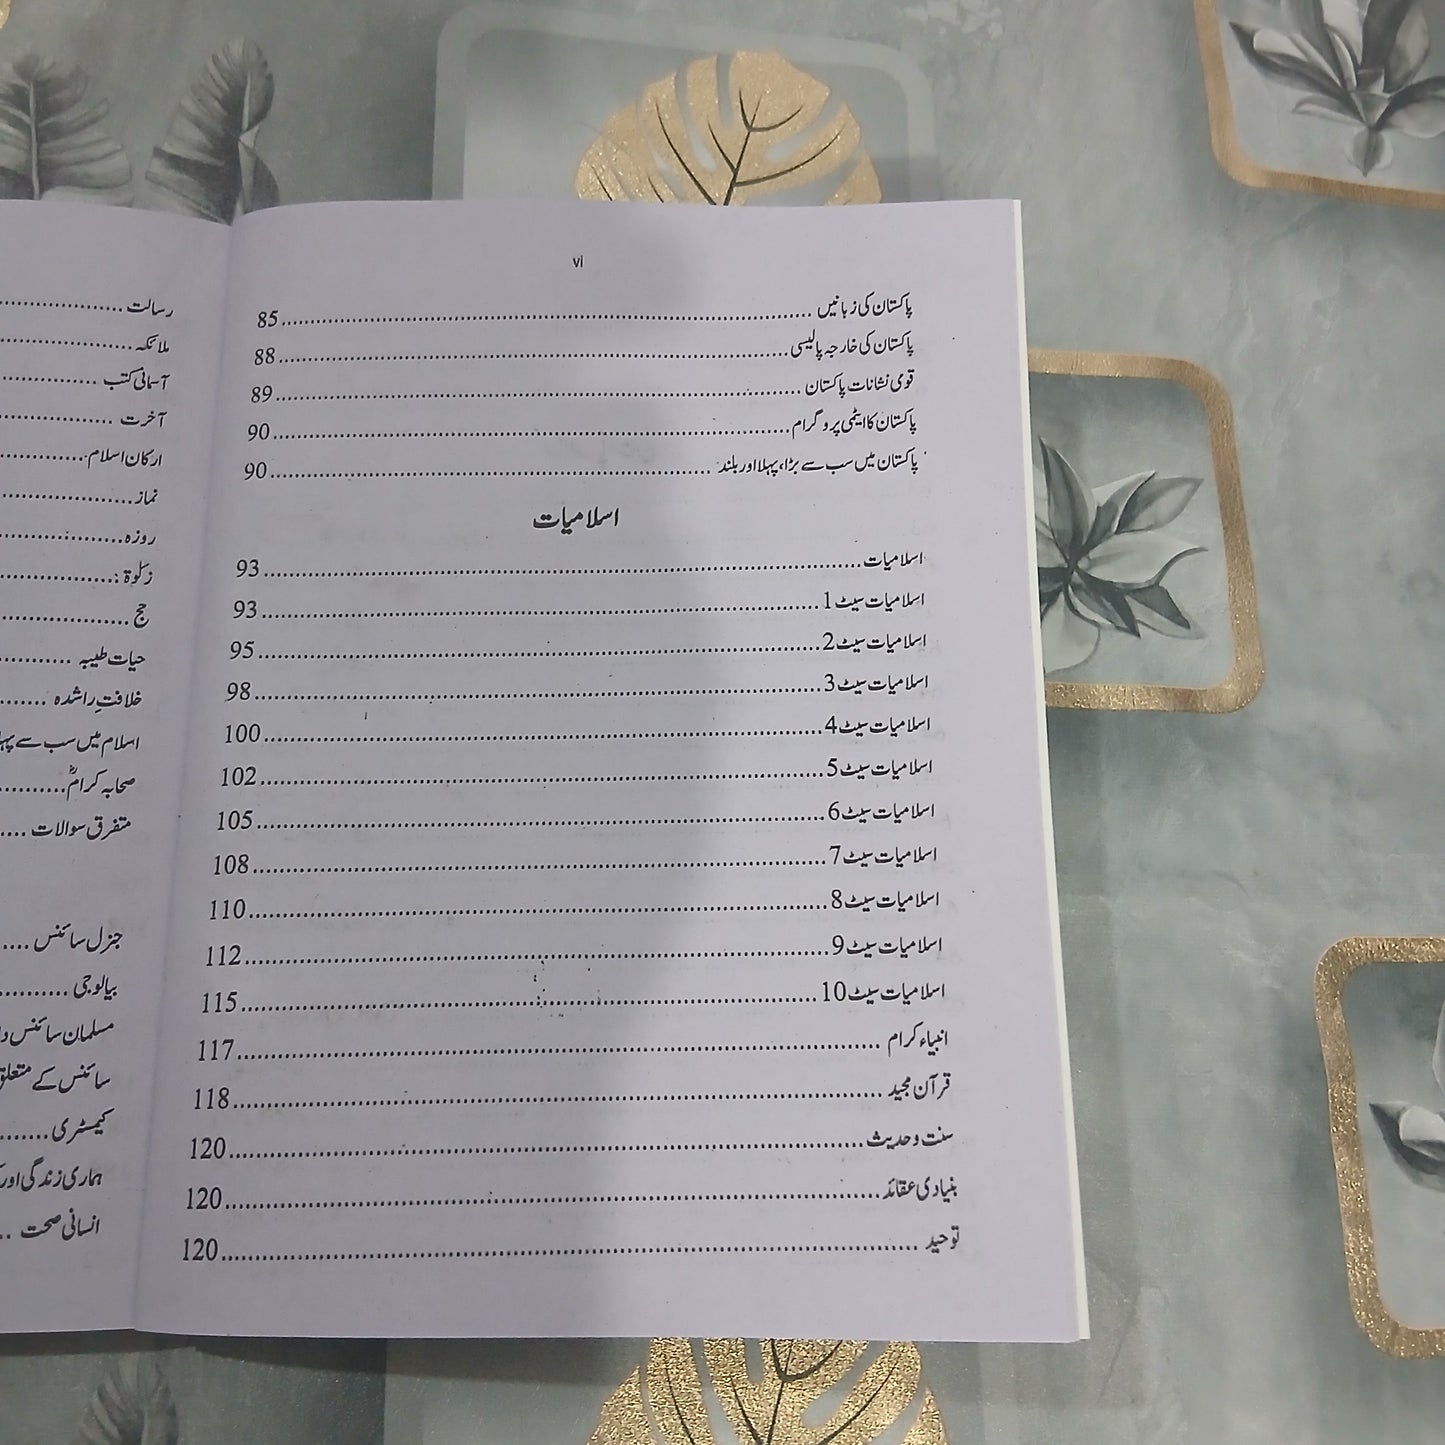 vi
پاکستان کی زبانیں ........ 85
پاکستان کی خارجہ پالیسی ........ 88
قومی نشانات پاکستان ........ 89
پاکستان کا ایٹمی پروگرام ........ 90
پاکستان میں سب سے بڑا، پہلا اور بلند ........ 90
اسلامیات
اسلامیات ........ 93
اسلامیات سیٹ 1 ........ 93
اسلامیات سیٹ 2 ........ 95
اسلامیات سیٹ 3 ........ 98
اسلامیات سیٹ 4 ........ 100
اسلامیات سیٹ 5 ........ 102
اسلامیات سیٹ 6 ........ 105
اسلامیات سیٹ 7 ........ 108
اسلامیات سیٹ 8 ........ 110
اسلامیات سیٹ 9 ........ 112
اسلامیات سیٹ 10 ........ 115
انبیاء کرام ........ 117
قرآن مجید ........ 118
سنت و حدیث ........ 120
بنیادی عقائد ........ 120
توحید ........ 120
رسالت ........
ملائکہ ........
آسمانی کتب ........
آخرت ........
ارکان اسلام ........
نماز ........
روزہ ........
زکوٰۃ: ........
حج ........
حیات طیبہ ........
خلافتِ راشدہ ........
اسلام میں سب سے
صحابہ کرامؓ ........
متفرق سوالات ........
جنرل سائنس ........
بیالوجی ........
مسلمان سائنس
سائنس کے
کیمسٹری ........
ہماری زندگی اور
انسانی صحت ........